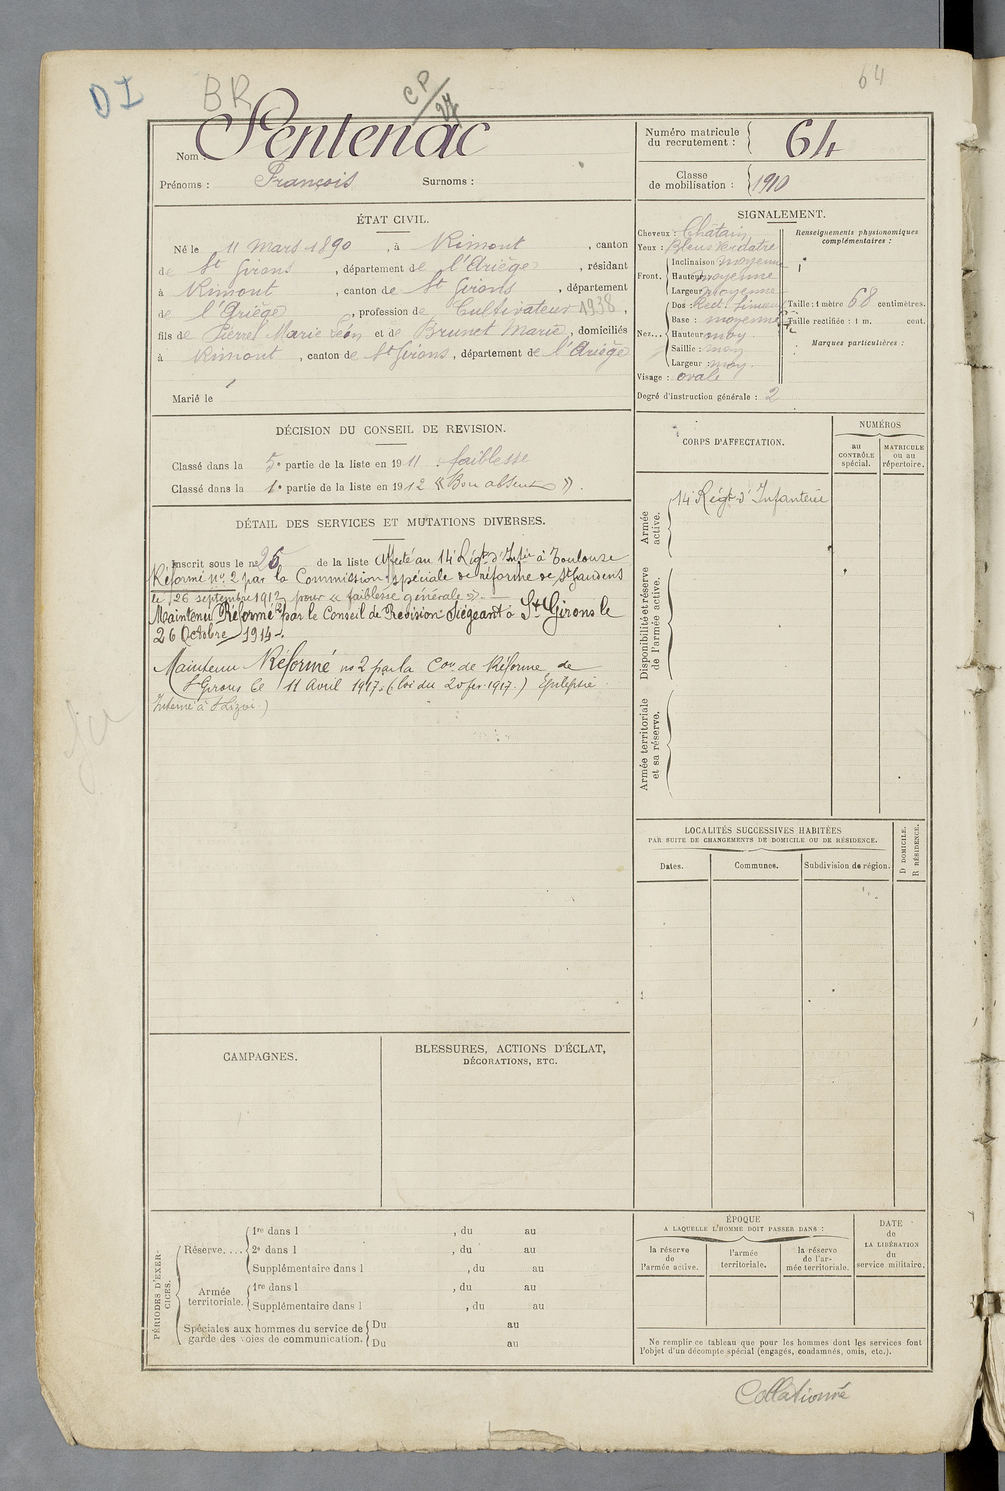 64
DI BR CP/27
Nom : Sentenac
Prénoms : François Surnoms :
Numéro matricule du recrutement : 64
Classe de mobilisation : 1910
ÉTAT CIVIL.
Né le 11 Mars 1890, à Rimont, canton
de St Girons, département de l'Ariège, résidant
à Rimont, canton de St Girons, département
de l'Ariège, profession de Cultivateur 1938,
fils de Pierre Marie Léon et de Brunet Marie, domiciliés
à Rimont, canton de St Girons, département de l'Ariège
Marié le
SIGNALEMENT.
Cheveux : Châtain
Yeux : Bleus Verdâtre
Front, Inclinaison moyenne
Hauteur moyenne
Largeur moyenne
Nez... Dos Rect. Sinueux
Base : moyenne
Hauteur moy
Saillie : moy
Largeur : moy.
Visage : ovale
Degré d'instruction générale : 2
Renseignements physionomiques complémentaires :
Taille : 1 mètre 68 centimètres.
Taille rectifiée : 1 m. cent.
Marques particulières :
DÉCISION DU CONSEIL DE REVISION.
Classé dans la 5e partie de la liste en 1911. faiblesse
Classé dans la 1e partie de la liste en 1912 « Bon absent ».
DÉTAIL DES SERVICES ET MUTATIONS DIVERSES.
Inscrit sous le no 25 de la liste Affecté au 14e Régt d'Infie à Toulouse
Réformé no 2 par la Commission spéciale de réforme de St Gaudens
le 26 septembre 1912 pour « faiblesse générale ».
Maintenu Réformé par le Conseil de Revision siégeant à St Girons le
26 Octobre 1914.
Maintenu Réformé no 2 par la Con de Réforme de
St Girons le 11 Avril 1917. (loi du 20 fév. 1917.) Epilepsie
Interné à St Lizier)
CORPS D'AFFECTATION.
NUMÉROS
au CONTRÔLE spécial.
MATRICULE ou au répertoire.
Armée active.
14e Régt d'Infanterie
Disponibilité et réserve de l'armée active.
Armée territoriale et sa réserve.
LOCALITÉS SUCCESSIVES HABITÉES
PAR SUITE DE CHANGEMENTS DE DOMICILE OU DE RÉSIDENCE.
Dates. Communes. Subdivision de région.
D DOMICILE.
R RÉSIDENCE.
CAMPAGNES.
BLESSURES, ACTIONS D'ÉCLAT,
DÉCORATIONS, ETC.
PÉRIODES D'EXERCICES.
Réserve.... 1re dans l , du au
2e dans l , du au
Supplémentaire dans l , du au
Armée territoriale. 1re dans l , du au
Supplémentaire dans l , du au
Spéciales aux hommes du service de garde des voies de communication. Du au
Du au
ÉPOQUE
A LAQUELLE L'HOMME DOIT PASSER DANS :
la réserve de l'armée active.
l'armée territoriale.
la réserve de l'armée territoriale.
DATE de LA LIBÉRATION du service militaire.
Ne remplir ce tableau que pour les hommes dont les services font
l'objet d'un décompte spécial (engagés, condamnés, omis, etc.).
Collationné